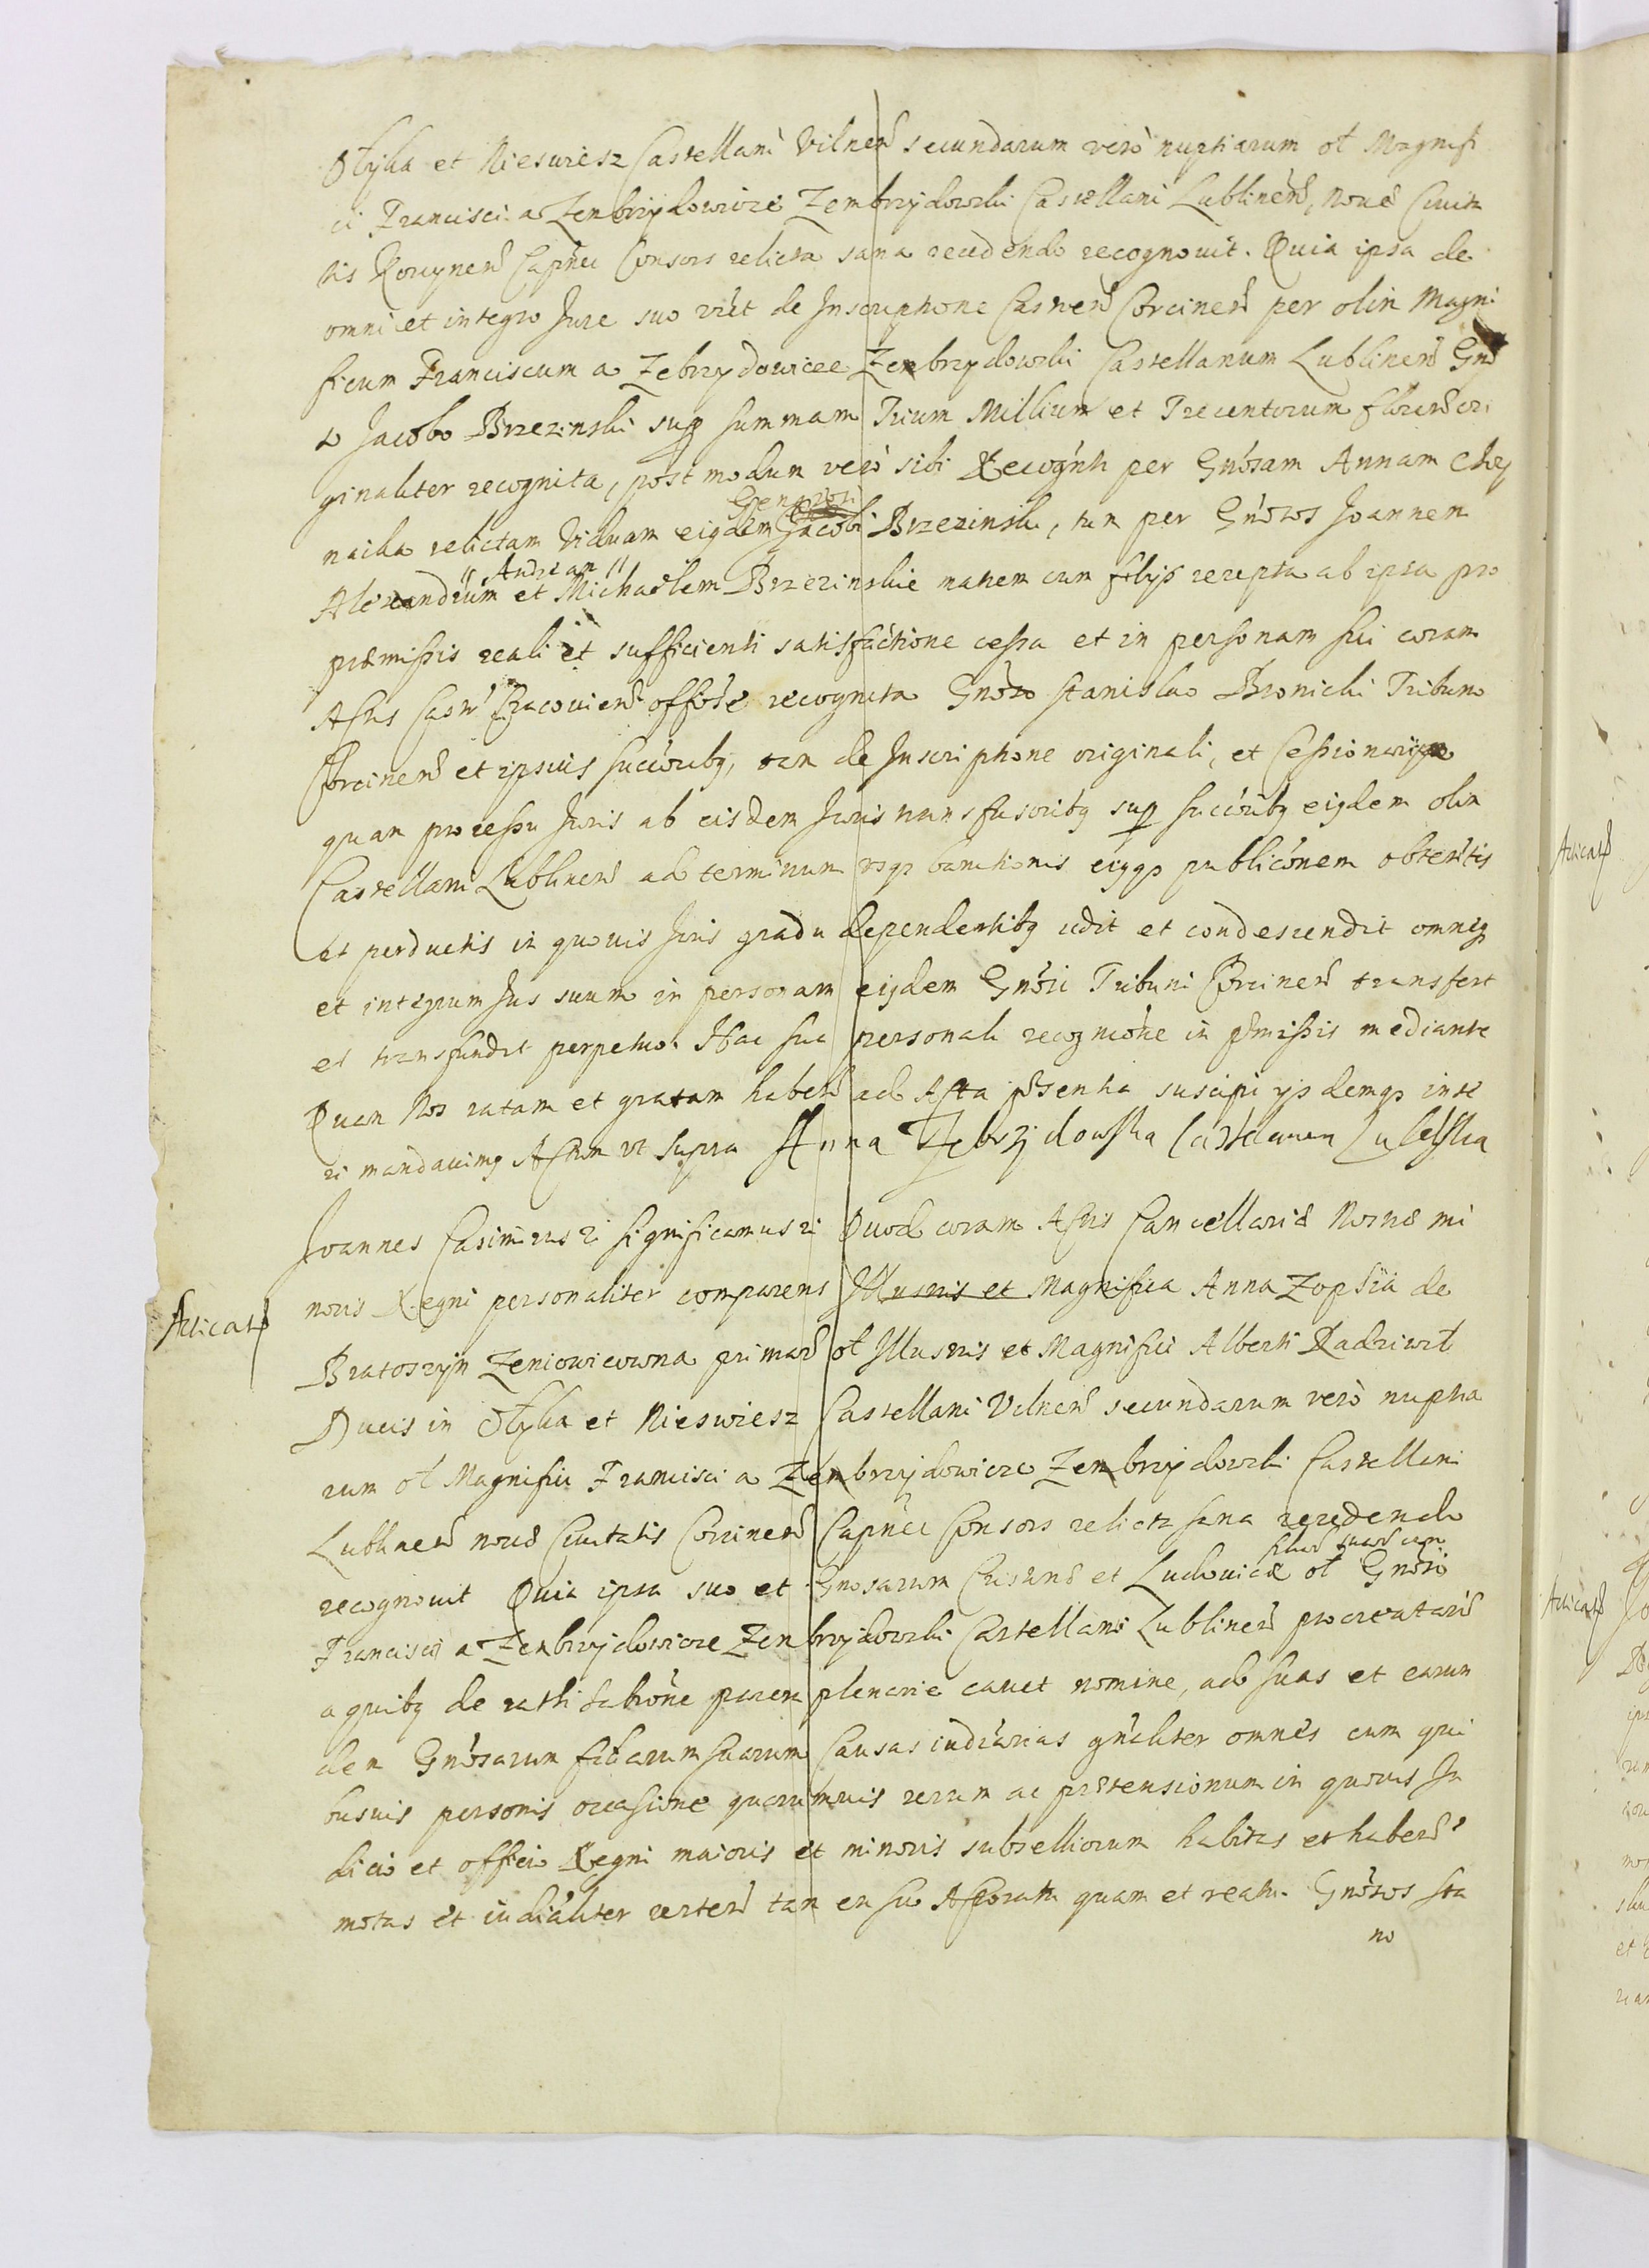 Ołyka et Nieswiesz Castellani Vilnen secundarum verò nuptiarum ol Magnifi
ci Francisci a Zembrzydowicze Zembrzydowski Castellani Lublinen, novæ Civita
tis Korcynen Capnei Consors relicta sana recedendo recognouit. Quia ipsa de
omni et integro Jure suo vizt de Inscriptione Castren Corcinen per olim Magni
ficum Franciscum a Zebrzydowice Zembrzydowski Castellanum Lublinen Gnos
o Jacobo Brzezinski sup summam Trium Millium et Trecentorum floren ori
ginaliter recognita, postmodum verò sibi Recognti per Gnosam Annam Choy
Generosi
naika relictam Viduam eigdem Jacobi Brzezinski, tum per Gnosos Joannem
Andream
Alexandrum et Michaelem Brzezinskie matrem cum filijs recepta ab ipsa pro
præmissis reali et sufficienti satisfactione cessa et in personam sui coram
Actis Castr Cracouien offose recognita Gnoso Stanislao Bronicki Tribuno
Corcinen et ipsius succoribq, tam de Inscriptione originali, et Cessionarijs
quam processu Juris ab eisdem Juris transfusoribq sup succoribq eigdem olim
Castellani Lublinen ad terminum vsqs banitionis eiqqs publiconem obtentis
et perductis in quouis Juris gradu dependentibq cedit et condescendit omneq
et integrum Jus suum in personam eigdem Gnosi Tribuni Corcinen transfert
et transfundit perpetuo. Hac sua personali recognicone in pmissis mediante
Quam Nos ratam et gratam haben ad Acta psentia suscipi ysdemqs inse
ri mandauimq Actum vt supra Anna Zebrzidowska Castelanan Lubelska
Joannes Casimirus ri significamus ri Quod coram Actis Cancellariæ Nostræ mi
noris Regni personaliter comparens Illustris et Magnifica Anna Zophia de
Acticat
Bratoszyn Zeniowicowna primar ol Illustris et Magnifici Alberti Radziwił
Ducis in Ołyka et Nieswiesz Castellani Vilnen secundarum verò nuptia
rum ol Magnifici Francisci a Zembrzydowicze Zembrzydowski Castellani
Lublinen novæ Ciuitatis Corcinen Capnei Consors relicta sana recedendo
filiar suar cum
recognouit Quia ipsa suo et Gnosarum Cristinæ et Ludouicæ ol Gnosi
Francisci a Zembrzydowicze Zembrzydowski Castellani Lublinen procreatar
a quibq de rathihabitione plenarie cauet nomine, ad suas et earun
dem Gnosarum filiarum suarum Causas iudiciarias gnaliter omnes cum qui
busuis personis occasione quarumuis rerum ac prætensionum in quouis Ju
dicio et officio Regni maioris et minoris subselliorum habitas et haben
motas et iudialiter verten tam ex suo Actoratu quam et reatu. Gnosos Sta
no
Acticat
Acticat